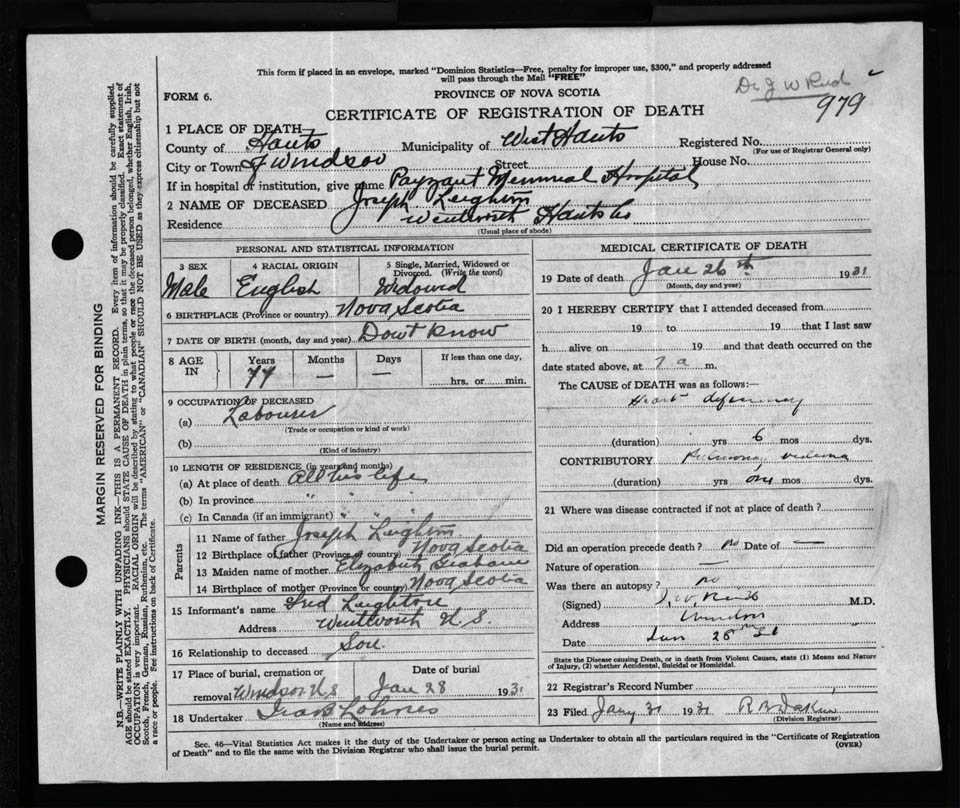 This form if placed in an envelope, marked "Dominion Statistics—Free, penalty for improper use, $300," and properly addressed
will pass through the Mail "FREE"
Dr J W Reid
979
FORM 6.
PROVINCE OF NOVA SCOTIA
CERTIFICATE OF REGISTRATION OF DEATH
1 PLACE OF DEATH—
County of Hants Municipality of West Hants Registered No.
(For use of Registrar General only)
City or Town Windsor Street House No.
If in hospital or institution, give name Payzant Memorial Hospital
2 NAME OF DECEASED Joseph Leighton
Residence Wentworth Hants Co
(Usual place of abode)
PERSONAL AND STATISTICAL INFORMATION
3 SEX
Male
4 RACIAL ORIGIN
English
5 Single, Married, Widowed or
Divorced. (Write the word)
Widowed
6 BIRTHPLACE (Province or country) Nova Scotia
7 DATE OF BIRTH (month, day and year) Dont Know
8 AGE
IN
Years
77
Months
—
Days
—
If less than one day,
hrs. or min.
9 OCCUPATION OF DECEASED
(a) Labourer
(Trade or occupation or kind of work)
(b)
(Kind of industry)
10 LENGTH OF RESIDENCE (in years and months)
(a) At place of death All his life
(b) In province " " "
(c) In Canada (if an immigrant) " " "
Parents
11 Name of father Joseph Leighton
12 Birthplace of father (Province or country) Nova Scotia
13 Maiden name of mother Elizabeth Graham
14 Birthplace of mother (Province or country) Nova Scotia
15 Informant's name Fred Leighton
Address Wentworth N.S.
16 Relationship to deceased Son
17 Place of burial, cremation or
removal Windsor N S
Date of burial
Jan 28 1931
18 Undertaker Ira B Lohnes
(Name and address)
MEDICAL CERTIFICATE OF DEATH
19 Date of death Jan 26th 1931
(Month, day and year)
20 I HEREBY CERTIFY that I attended deceased from
19 to 19 that I last saw
h alive on 19 and that death occurred on the
date stated above, at 7 a m.
The CAUSE of DEATH was as follows:—
Heart deficiency
(duration) yrs 6 mos dys.
CONTRIBUTORY Pulmonary oedema
(duration) yrs one mos dys.
21 Where was disease contracted if not at place of death?
Did an operation precede death? no Date of —
Nature of operation —
Was there an autopsy? no
(Signed) J. W. Reid M.D.
Address Windsor
Date Jan 28 31
State the Disease causing Death, or in death from Violent Causes, state (1) Means and Nature
of Injury, (2) whether Accidental, Suicidal or Homicidal.
22 Registrar's Record Number
23 Filed Jany 31 1931
(Division Registrar)
Sec. 46—Vital Statistics Act makes it the duty of the Undertaker or person acting as Undertaker to obtain all the particulars required in the "Certificate of Registration
of Death" and to file the same with the Division Registrar who shall issue the burial permit.
(OVER)
MARGIN RESERVED FOR BINDING
N.B.—WRITE PLAINLY WITH UNFADING INK—THIS IS A PERMANENT RECORD. Every item of information should be carefully supplied.
AGE should be stated EXACTLY. PHYSICIANS should STATE CAUSE OF DEATH in plain terms, so that it may be properly classified. Exact statement of
OCCUPATION is very important. RACIAL ORIGIN will be described by stating to what people or race the deceased person belonged, whether English, Irish,
Scotch, French, German, Russian, Ruthenian, etc. The terms "AMERICAN" or "CANADIAN" SHOULD NOT BE USED as they express citizenship but not
a race or people. See instructions on back of Certificate.